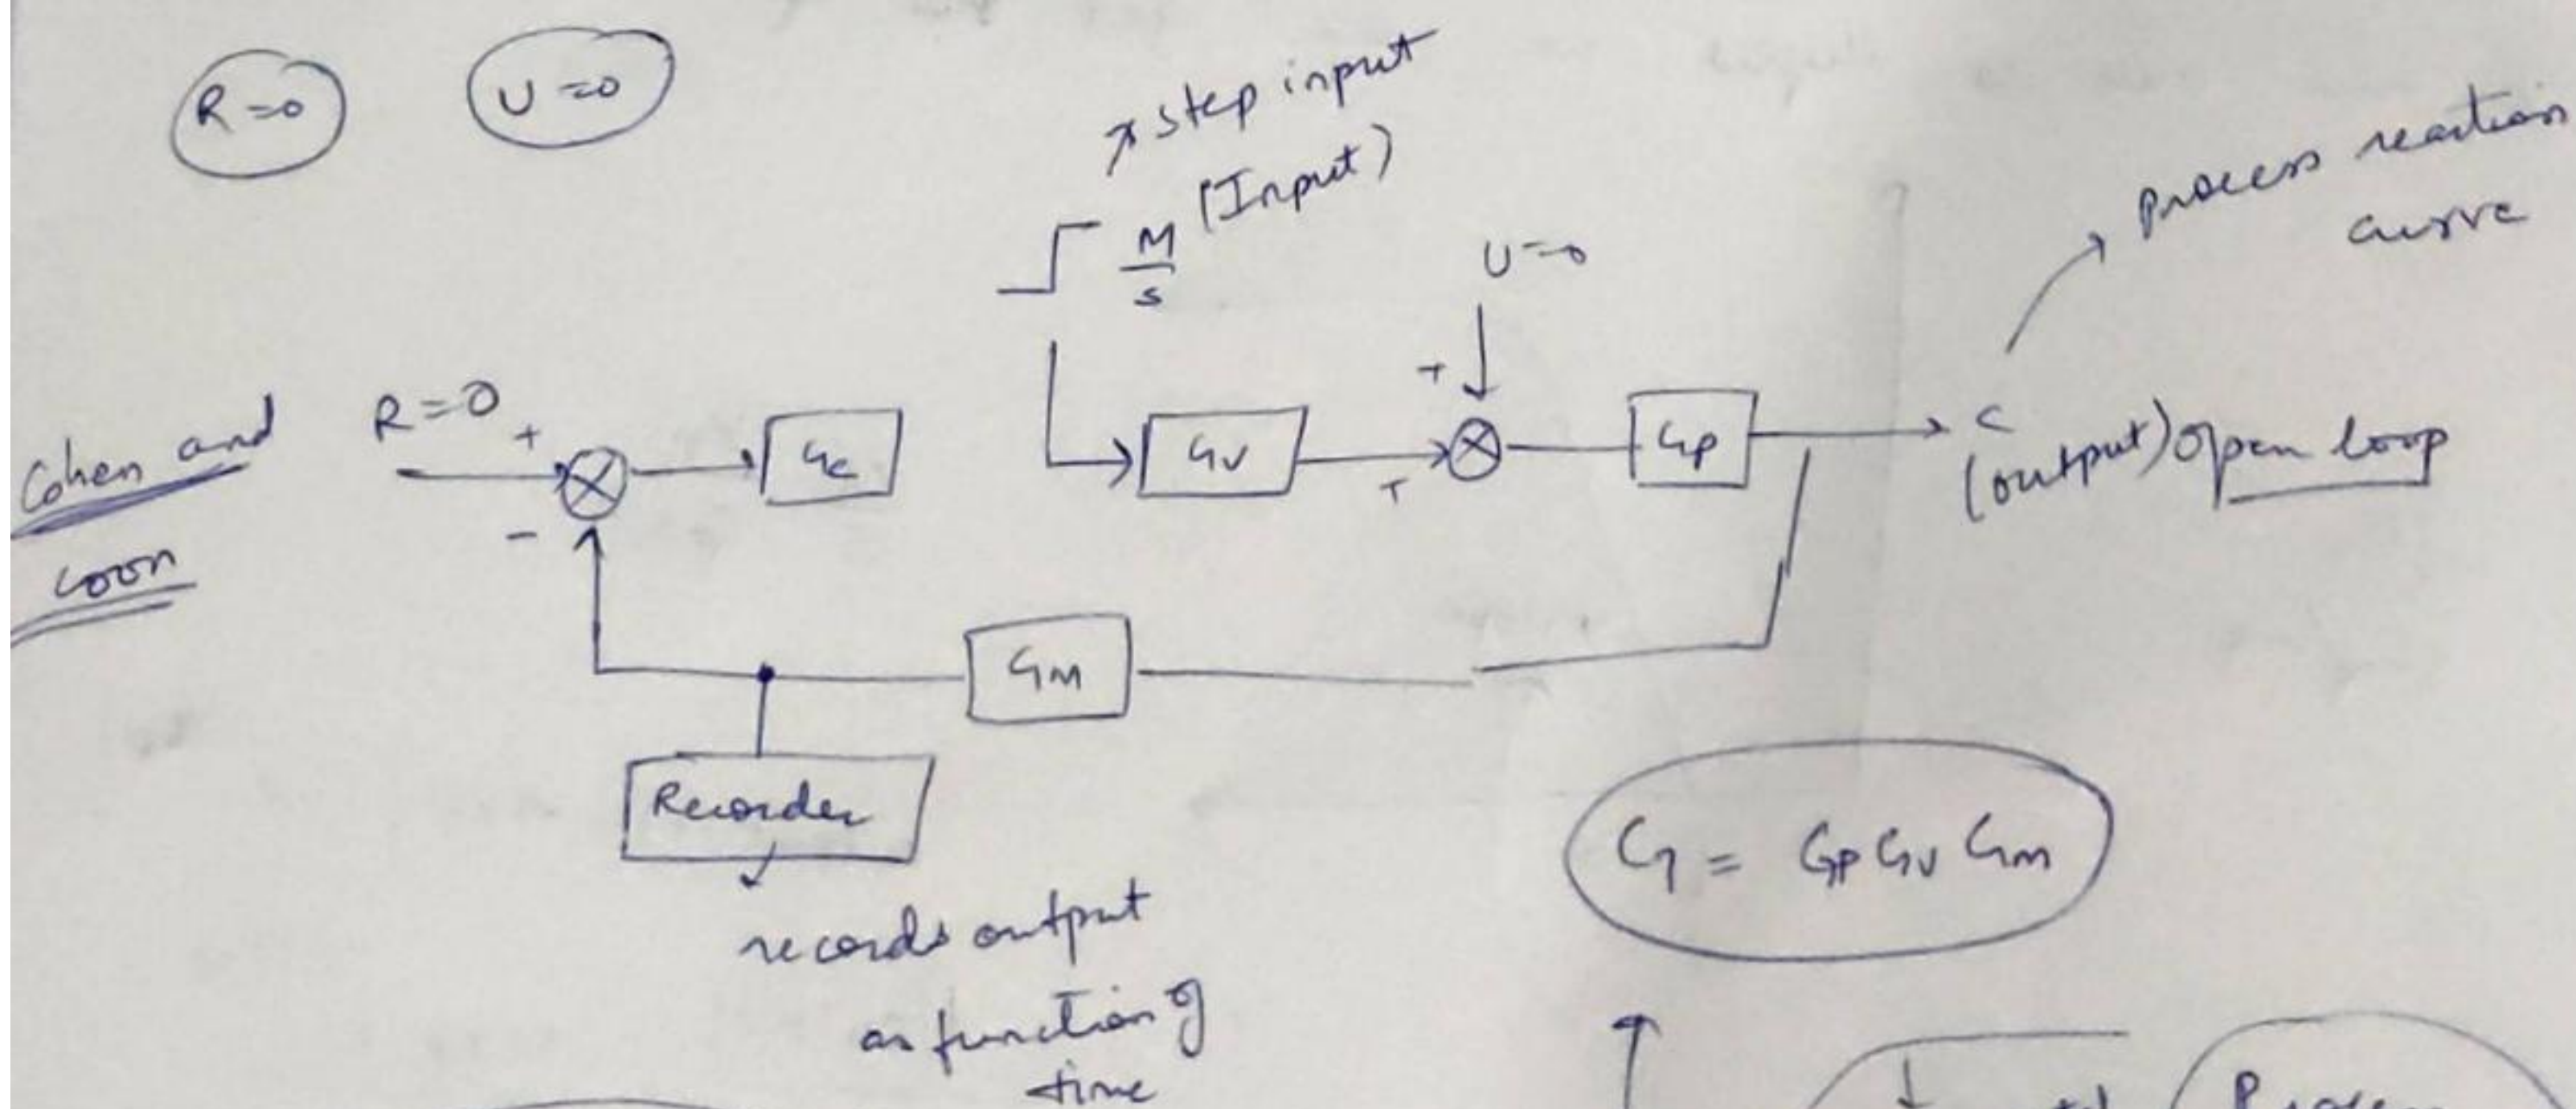 R=0
U=0
step input
(Input)
M
s
U=0
process reaction
curve
Cohen and
coon
R=0
+
-
Gc
Gv
+
+
Gp
C
(output) open loop
Gm
Recorder
records output
as function of
time
G = Gp Gv Gm